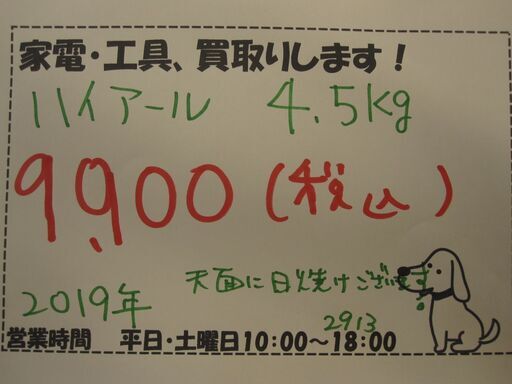 家電・工具、買取りします！
ハイアール 4.5kg
9,900(税込)
天面に日焼けございます。
2019年
2913
営業時間 平日・土曜日10:00～18:00